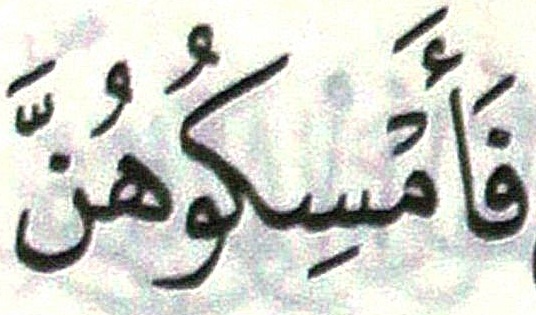 فَأَمْسِكُوهُنَّ